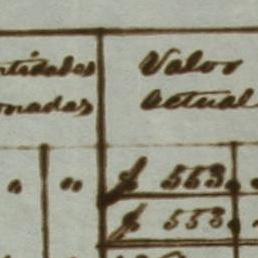 ntidades Valor
onadas Actual
" " $ 553.
$ 553.